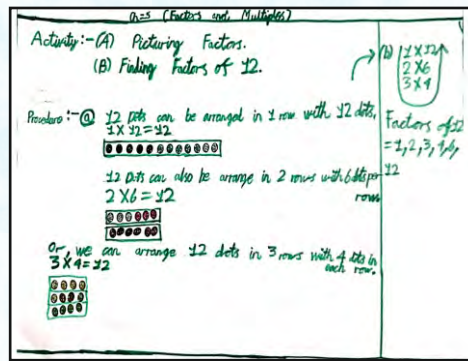 Ch=5 (Factors and Multiples)
Activity:-(A) Picturing Factors.
(B) Finding Factors of 12.
Procedure:-(a) 12 Dots can be arranged in 1 row with 12 dots.
1 X 12 = 12
12 Dots can also be arrange in 2 rows with 6 dots per row
2 X 6 = 12
Or, we can arrange 12 dots in 3 rows with 4 dots in each row.
3 X 4 = 12
(b) 1 X 12
2 X 6
3 X 4
Factors of 12
= 1, 2, 3, 4, 6,
12